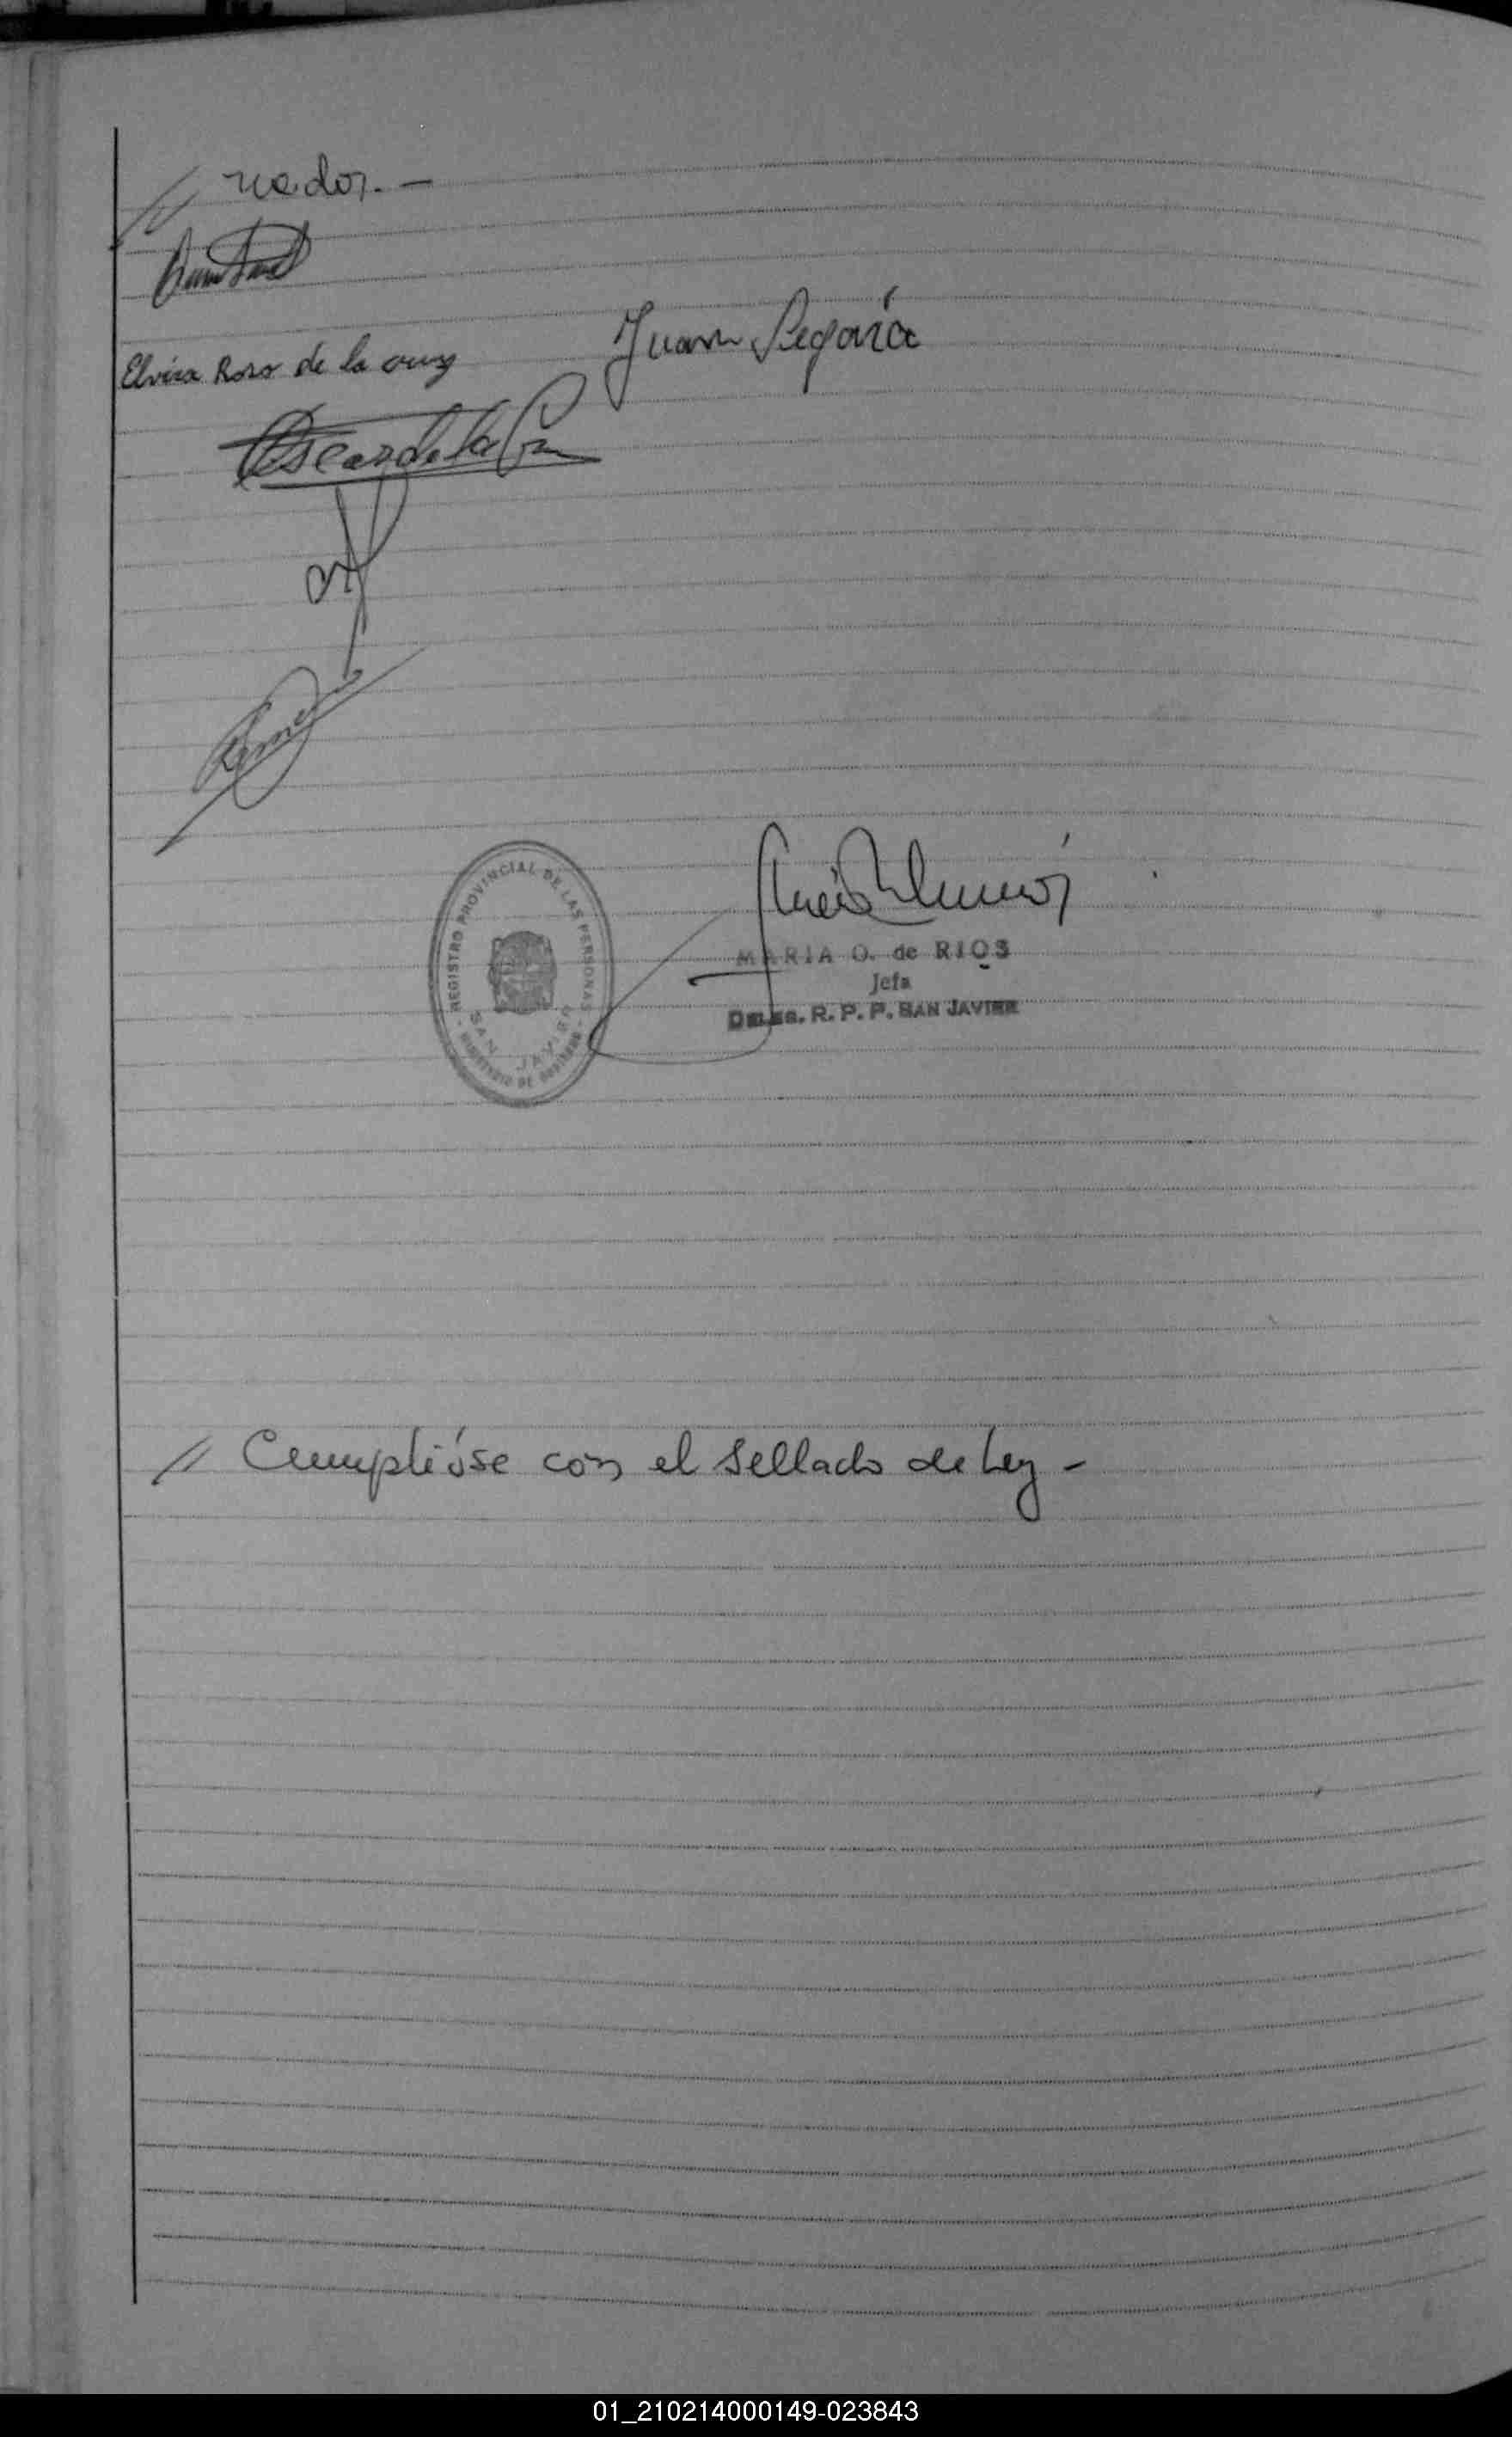 // nador. —
Elvira Rosa de la Cruz
Juan Segovia
Oscar de la Cruz
REGISTRO PROVINCIAL DE LAS PERSONAS
SAN JAVIER
MINISTERIO DE GOBIERNO
MARIA O. de RIOS
Jefa
DELEG. R. P. P. SAN JAVIER
// Cumplióse con el sellado de Ley -
01_210214000149-023843